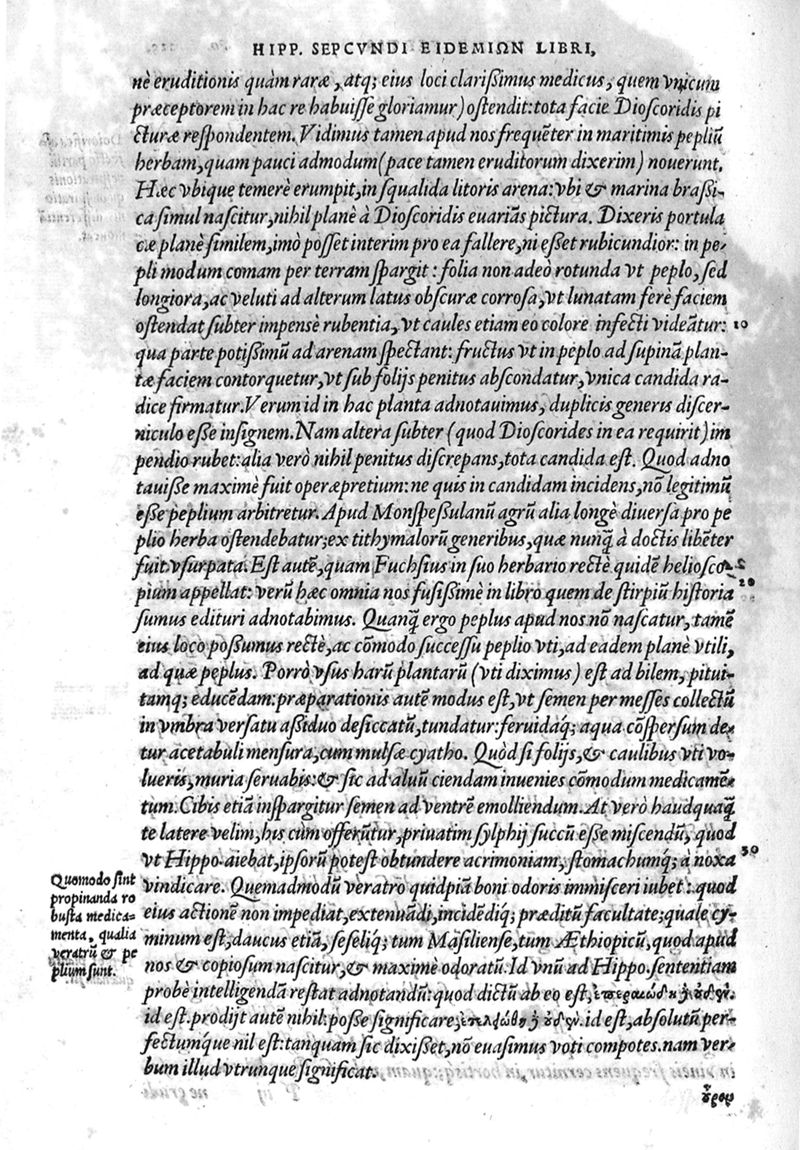 HIPP. SEPCVNDI EIDEMIΩN LIBRI,
nè eruditionis quàm raræ, atq; eius loci clarißimus medicus, quem vnicum
præceptorem in hac re habuisse gloriamur) ostendit: tota facie Dioscoridis pi
cturæ respondentem. Vidimus tamen apud nos frequēter in maritimis pepliū
herbam, quam pauci admodum (pace tamen eruditorum dixerim) nouerunt.
Hæc vbique temerè erumpit, in squalida litoris arena: vbi & marina braßi-
ca simul nascitur, nihil planè à Dioscoridis euariās pictura. Dixeris portula
cæ planè similem, imò posset interim pro ea fallere, ni esset rubicundior: in pe-
pli modum comam per terram spargit: folia non adeò rotunda vt peplo, sed
longiora, ac veluti ad alterum latus obscuræ corrosa, vt lunatam ferè faciem
ostendat subter impensè rubentia, vt caules etiam eo colore infecti videātur: 10
qua parte potissimū ad arenam spectant: fructus vt in peplo ad supinā plan-
tæ faciem contorquetur, vt sub folijs penitus abscondatur, vnica candida ra-
dice firmatur. Verum id in hac planta adnotauimus, duplicis generis discer-
niculo esse insignem. Nam altera subter (quod Dioscorides in ea requirit) im
pendio rubet: alia verò nihil penitus discrepans, tota candida est. Quod adno
tauisse maximè fuit operæpretium: ne quis in candidam incidens, nō legitimū
esse peplium arbitretur. Apud Monspessulanū agrū alia longè diuersa pro pe
plio herba ostendebatur; ex tithymalorū generibus, quæ nunq̄ à doctis libēter
fuit vsurpata. Est autē, quam Fuchsius in suo herbario rectè quidē heliosco-
pium appellat: verū hæc omnia nos fusissimè in libro quem de stirpiū historia 20
sumus edituri adnotabimus. Quanq̄ ergo peplus apud nos nō nascatur, tamē
eius loco possumus rectè, ac cōmodo successu peplio vti, ad eadem planè vtili,
ad quæ peplus. Porrò vsus harū plantarū (vti diximus) est ad bilem, pitui-
tamq; educēdam: præparationis autē modus est, vt semen per messes collectū
in vmbra versatu aßiduo desiccatū, tundatur: feruidaq; aqua cōspersum de-
tur acetabuli mensura, cum mulsæ cyatho. Quòd si folijs, & caulibus vti vo-
lueris, muria seruabis: & sic ad aluū ciendam inuenies cōmodum medicamē-
tum. Cibis etiā inspargitur semen ad ventrē emolliendum. At verò haudquaq̄
te latere velim, his cum offerūtur, priuatim sylphij succū esse miscendū, quod
vt Hippo. aiebat, ipsorū potest obtundere acrimoniam, stomachumq; à noxa 30
Quomodo sint
propinanda ro
busta medica-
menta, qualia
veratrū & pe
plium sunt.
vindicare. Quemadmodū veratro quidpiā boni odoris immisceri iubet: quod
eius actionē non impediat, extenuādi, incidēdiq; præditū facultate; quale cy-
minum est, daucus etiā, seseliq; tum Masiliense, tum Æthiopicū, quod apud
nos & copiosum nascitur, & maximè odoratū. Id vnū ad Hippo. sententiam
probè intelligendā restat adnotandū: quod dictū ab eo est,
id est. prodijt autē nihil: posse significare, id est, absolutū per-
fectumq́ue nil est: tanquam sic dixisset, nō euasimus voti compotes. nam ver-
bum illud vtrunque significat.